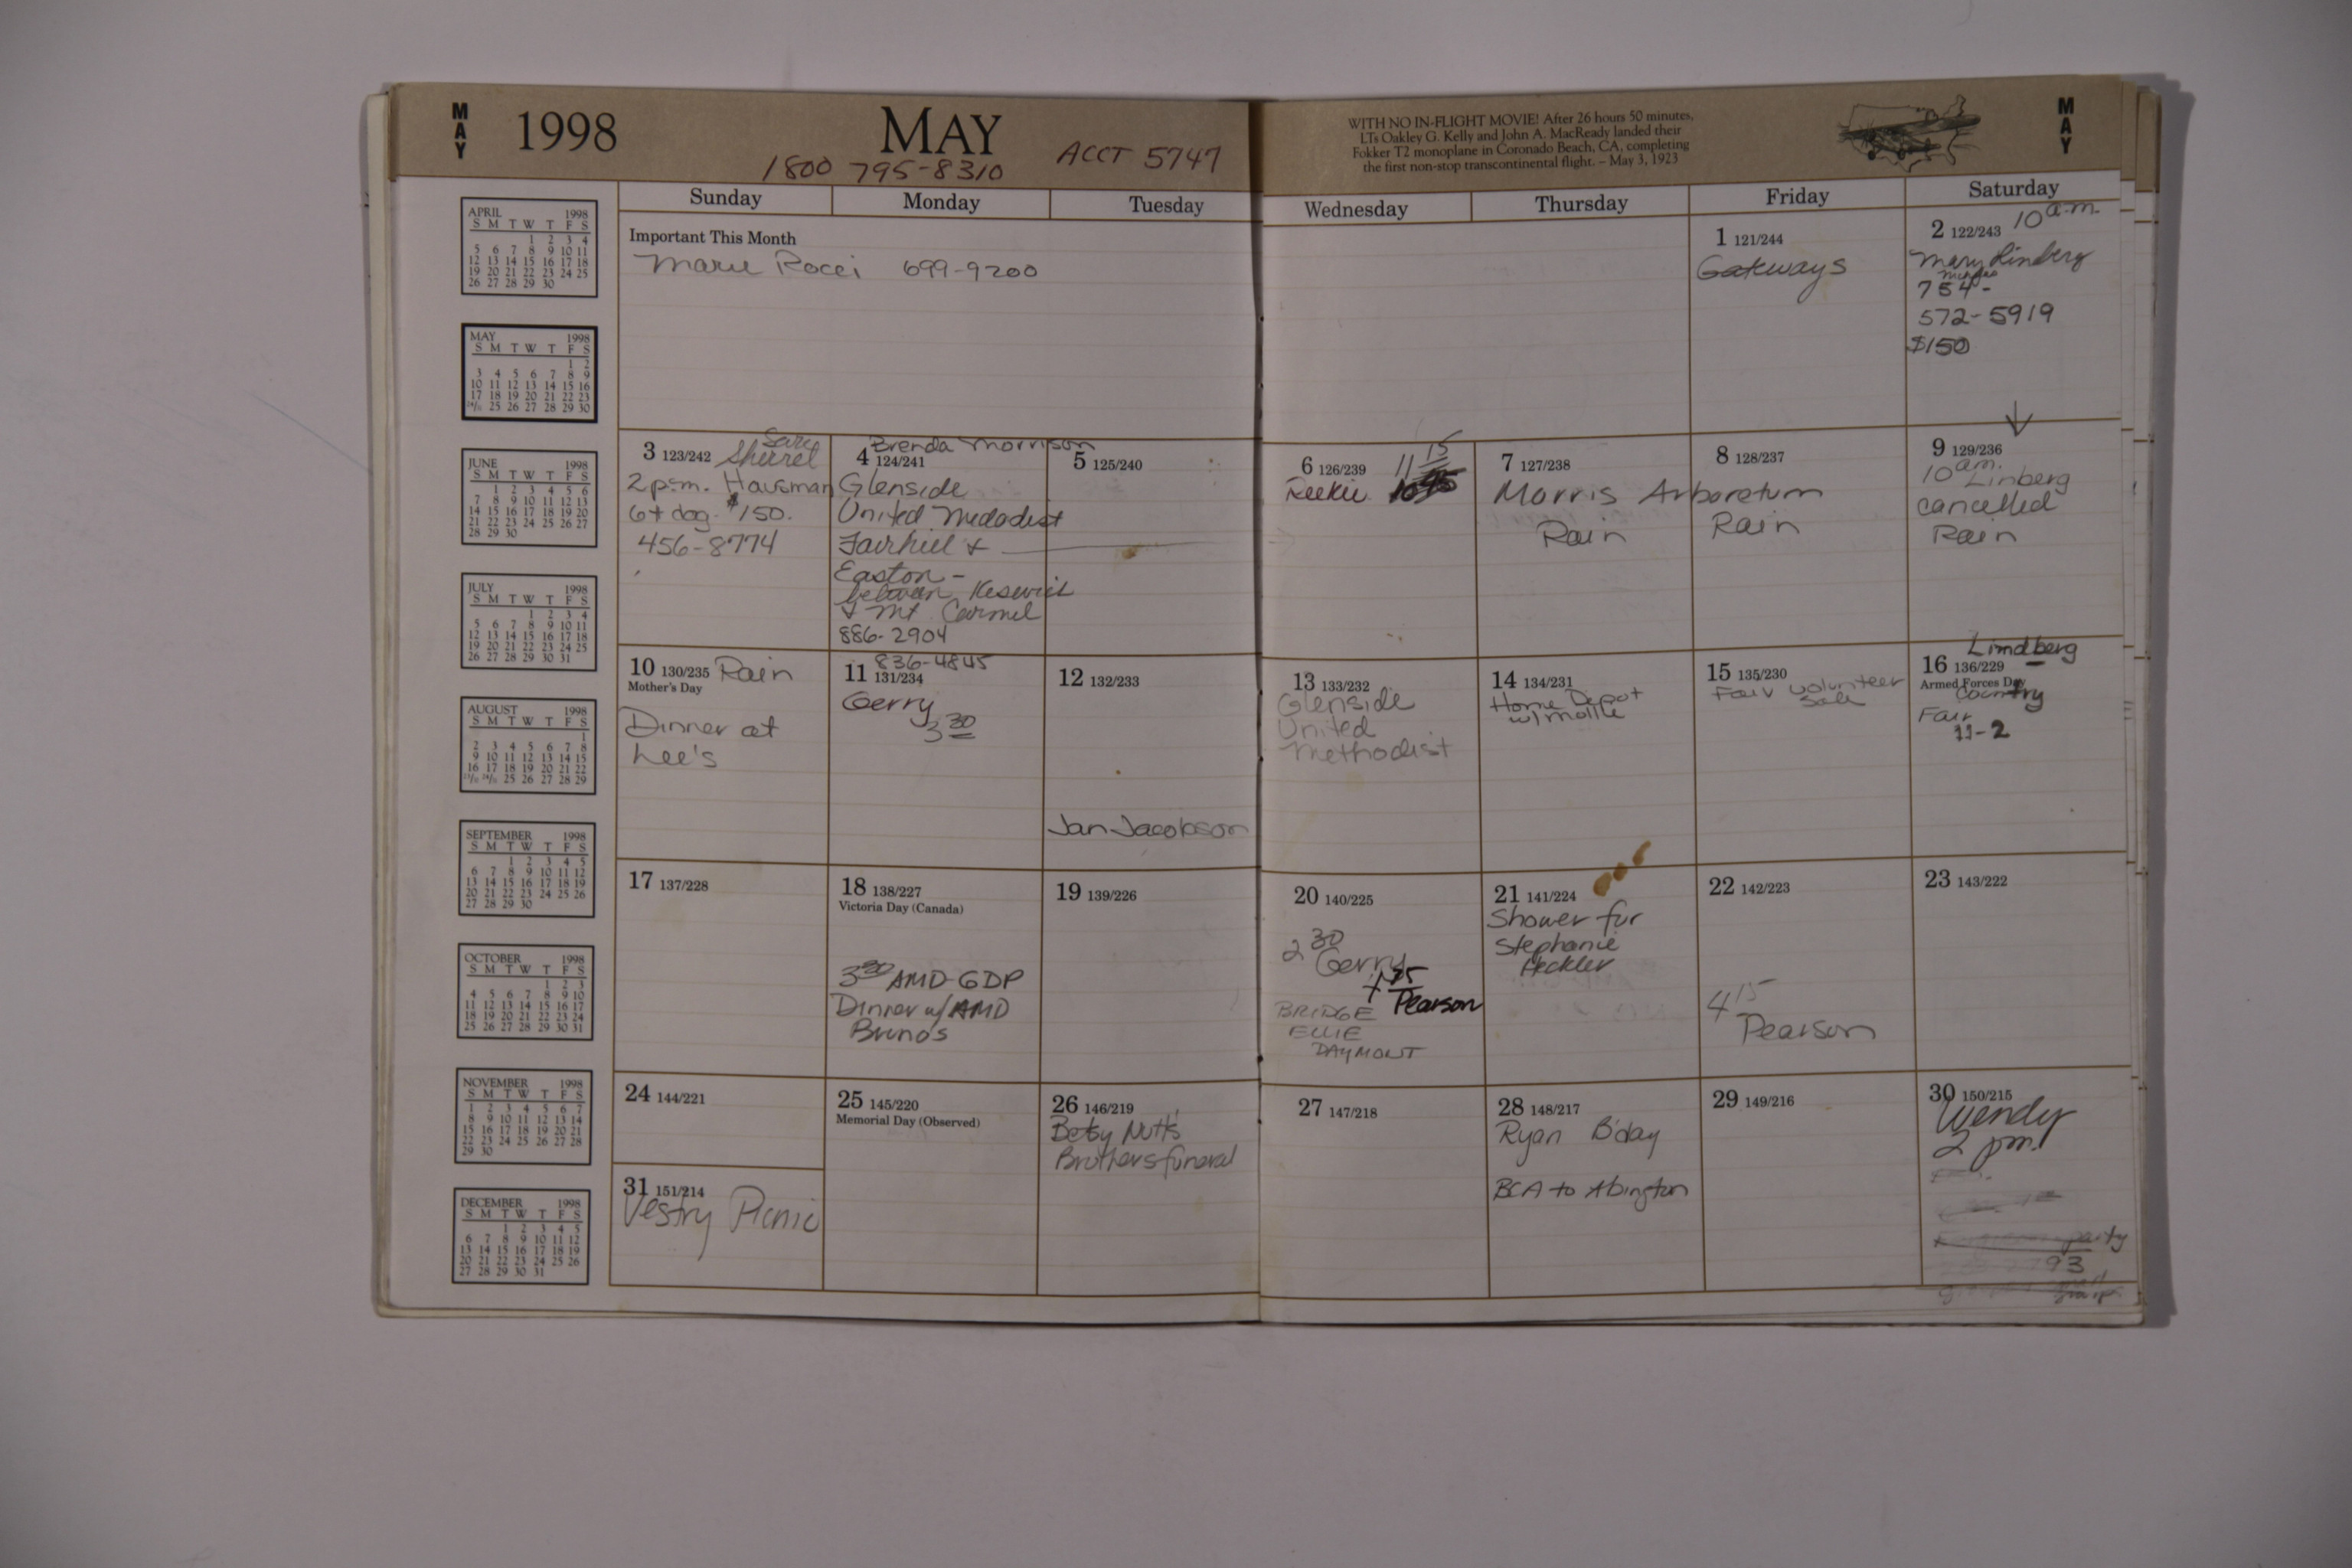 MAY
1998
MAY
1800 795-8310
ACCT 5747
WITH NO IN-FLIGHT MOVIE! After 26 hours 50 minutes,
LTs Oakley G. Kelly and John A. MacReady landed their
Fokker T2 monoplane in Coronado Beach, CA, completing
the first non-stop transcontinental flight. – May 3, 1923
MAY
Sunday Monday Tuesday Wednesday Thursday Friday Saturday
APRIL 1998
S M T W T F S
1 2 3 4
5 6 7 8 9 10 11
12 13 14 15 16 17 18
19 20 21 22 23 24 25
26 27 28 29 30
MAY 1998
S M T W T F S
1 2
3 4 5 6 7 8 9
10 11 12 13 14 15 16
17 18 19 20 21 22 23
24/31 25 26 27 28 29 30
JUNE 1998
S M T W T F S
1 2 3 4 5 6
7 8 9 10 11 12 13
14 15 16 17 18 19 20
21 22 23 24 25 26 27
28 29 30
JULY 1998
S M T W T F S
1 2 3 4
5 6 7 8 9 10 11
12 13 14 15 16 17 18
19 20 21 22 23 24 25
26 27 28 29 30 31
AUGUST 1998
S M T W T F S
1
2 3 4 5 6 7 8
9 10 11 12 13 14 15
16 17 18 19 20 21 22
23/30 24/31 25 26 27 28 29
SEPTEMBER 1998
S M T W T F S
1 2 3 4 5
6 7 8 9 10 11 12
13 14 15 16 17 18 19
20 21 22 23 24 25 26
27 28 29 30
OCTOBER 1998
S M T W T F S
1 2 3
4 5 6 7 8 9 10
11 12 13 14 15 16 17
18 19 20 21 22 23 24
25 26 27 28 29 30 31
NOVEMBER 1998
S M T W T F S
1 2 3 4 5 6 7
8 9 10 11 12 13 14
15 16 17 18 19 20 21
22 23 24 25 26 27 28
29 30
DECEMBER 1998
S M T W T F S
1 2 3 4 5
6 7 8 9 10 11 12
13 14 15 16 17 18 19
20 21 22 23 24 25 26
27 28 29 30 31
Important This Month
Marie Rocci 699-9200
1 121/244
Gateways
2 122/243 10 a.m.
Mary Linberg
754-
572-5919
$150
3 123/242
Sherrel
2 p.m. Hausman
6+ dog $150.
456-8774
Brenda Morrison
4 124/241
Glenside
United Medodist
Fairhill +
Easton -
between Keswick
+ Mt Carmel
886-2904
5 125/240
6 126/239 11 15
Reekie
7 127/238
Morris Arboretum
Rain
8 128/237
Rain
9 129/236
10 a.m.
Linberg
cancelled
Rain
10 130/235 Rain
Mother's Day
Dinner at
Lee's
836-4845
11 131/234
Gerry
3 30
12 132/233
Jan Jacobson
13 133/232
Glenside
United
Methodist
14 134/231
Home Depot
w/ Mollie
15 135/230
Fair volunteer
Sale
Lindberg
16 136/229
Armed Forces Day
Country
Fair
11-2
17 137/228
18 138/227
Victoria Day (Canada)
3 30 AMD-GDP
Dinner w/ AMD
Bruno's
19 139/226
20 140/225
2 30
Gerry
Pearson
BRIDGE
ELLIE
DAYMONT
21 141/224
Shower for
Stephanie
Heckler
22 142/223
4 15
Pearson
23 143/222
24 144/221
25 145/220
Memorial Day (Observed)
26 146/219
Betsy Nutt's
Brothers funeral
27 147/218
28 148/217
Ryan B'day
BCA to Abington
29 149/216
30 150/215
Wendy
2 pm.
party
93
31 151/214
Vestry Picnic